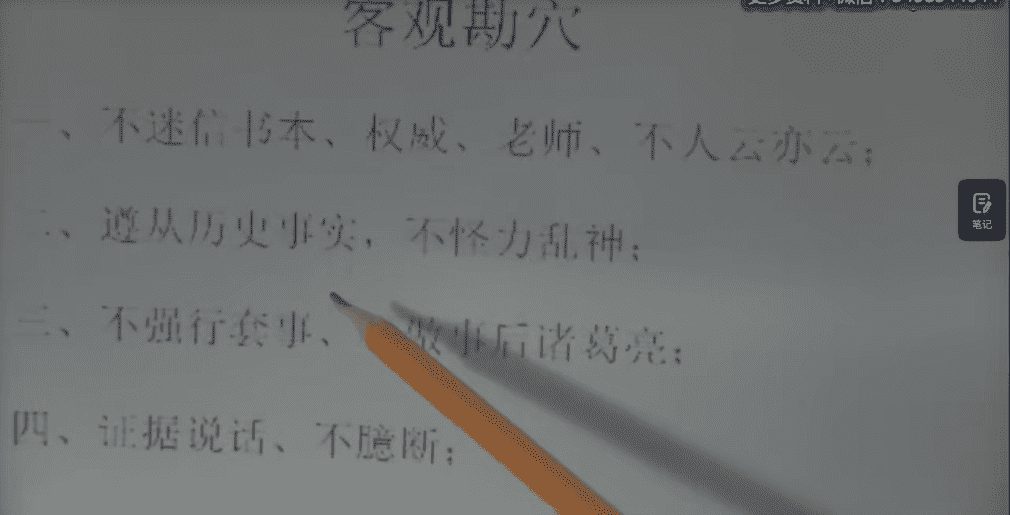 客观勘穴
一、不迷信书本、权威、老师、不人云亦云；
二、遵从历史事实，不怪力乱神；
三、不强行套事、做事后诸葛亮；
四、证据说话、不臆断；
笔记